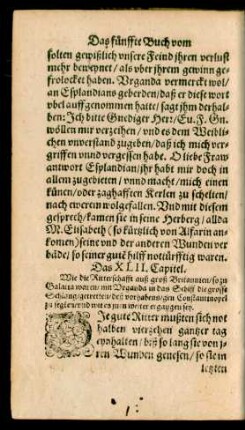 Das fünffte Buch vom
solten gewißlich vnsere Feind jhren verlust
mehr beweynet / als vber jhrem gewinn ge-
frolocket haben. Vrganda vermerckt wol /
an Esplandians geberden / daß er diese wort
vbel auffgenommen hatte / sagt jhm derhal-
ben: Ich bitte Gnediger Herr / Eu. F. Gn.
wöllen mir verzeihen / vnd es dem Weibli-
chen vnverstand zugeben / daß ich mich ver-
griffen vnnd vergessen habe. O liebe Fraw
antwort Esplandian / jhr habt mir doch in
allem zugebieten / vnnd macht / mich einen
künen / oder zaghafften Kerlen zu schelten /
nach ewerem wolgefallen. Vnd mit diesem
gesprech / kamen sie in seine Herberg / allda
M. Elisabeth (so kürtzlich von Alfarin an-
komen) seine vnd der anderen Wunden ver
bãde / so seiner gute hilff notürfftig waren.
Das XLIII. Capitel.
Wie die Ritterschafft auß groß Britannien / so zu
Galatia waren / mit Vrganda in das Schiff die grosse
Schlang / getretten / deß vorhabens / gen Constantinopel
zu segeln / vnd wie es jnen weiter ergangen sey.
DIe gute Ritter mußten sich not
halben viertzehen gantzer tag
enthalten / biß so lang sie von jh-
ren Wunden genesen / so sie in
letzten